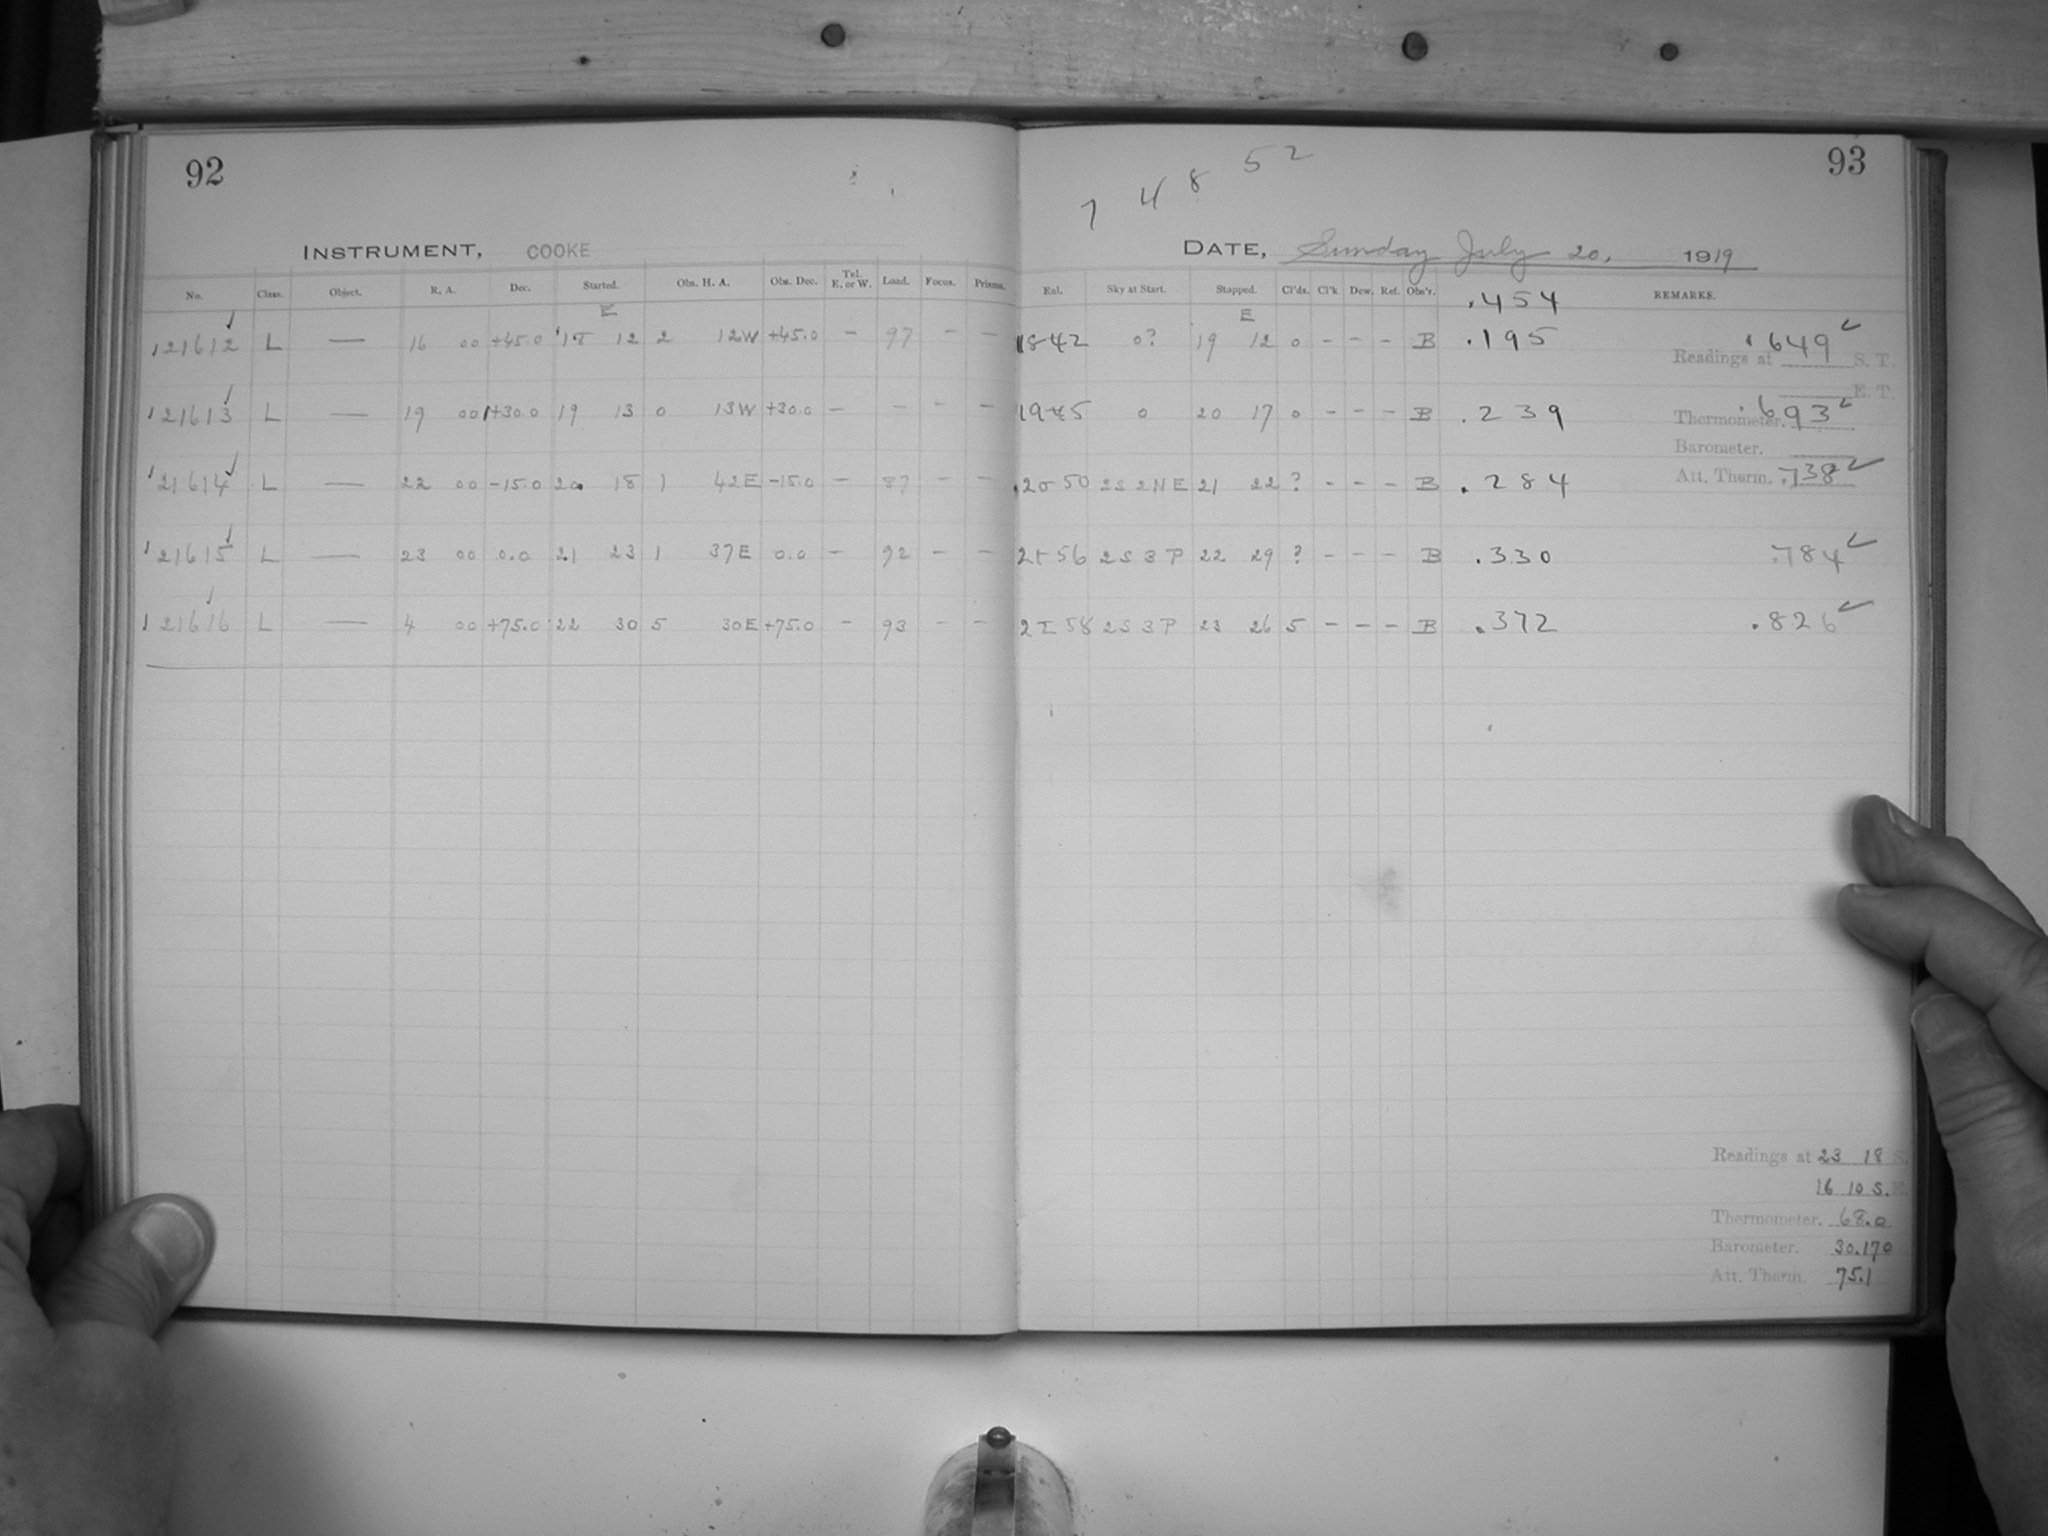 92
INSTRUMENT, COOKE
No. Class. Object. R. A. Dec. Started. Obs. H. A. Obs. Dec. Tel. E. or W. Load. Focus. Prisms.
E
121612 L — 16 00 +45.0 18 12 2 12W +45.0 – 97 – –
121613 L — 19 00 +30.0 19 13 0 13W +30.0 – – – –
121614 L — 22 00 -15.0 20 18 1 42E -15.0 – 87 – –
121615 L — 23 00 0.0 21 23 1 37E 0.0 – 92 – –
121616 L — 4 00 +75.0 22 30 5 30E +75.0 – 93 – –
93
7 4 8 52
DATE, Sunday July 20, 1919
Eal. Sky at Start. Stopped. Cl'ds. Cl'k Dew. Ref. Obs'r. .454 REMARKS.
E
1842 0? 19 12 0 – – – B .195 .649 ✓
Readings at S. T.
E. T.
1945 0 20 17 0 – – – B .239 .693 ✓
Thermometer.
Barometer.
2050 2S 2NE 21 22 ? – – – B .284 .738 ✓
Att. Therm.
56 2S 3P 22 29 ? – – – B .330 .784 ✓
58 2S 3P 23 26 5 – – – B .372 .826 ✓
Readings at 23 18 S.
16 10 S.
Thermometer. 68.0
Barometer. 30.170
Att. Therm. 75.1